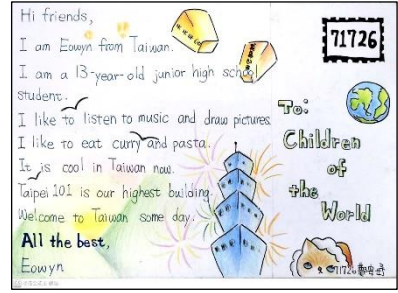 Hi friends,
I am Eowyn from Taiwan.
I am a 13-year-old junior high school
student.
I like to listen to music and draw pictures.
I like to eat curry and pasta.
It is cool in Taiwan now.
Taipei 101 is our highest building.
Welcome to Taiwan some day.
All the best,
Eowyn
71726
To:
Children
of
the
World